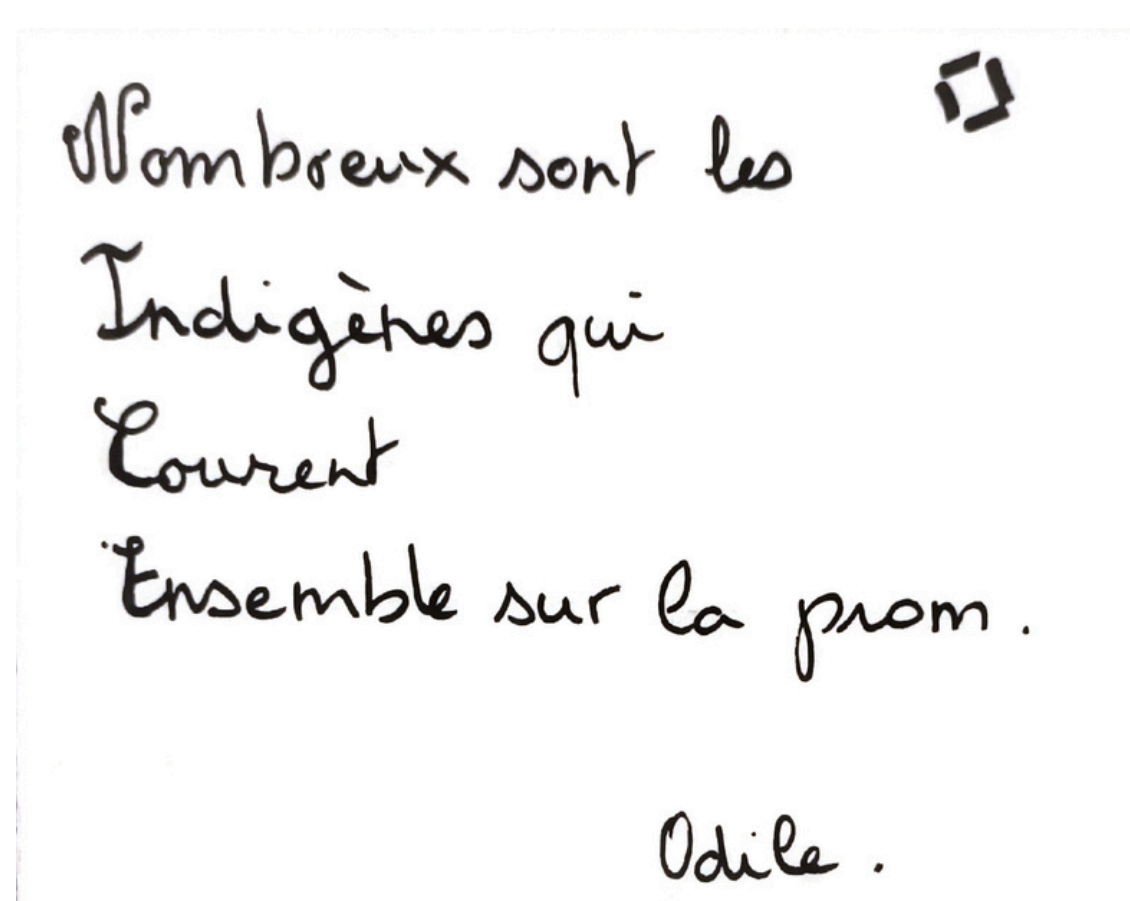 Nombreux sont les
Indigènes qui
Courent
Ensemble sur la prom.
Odile.